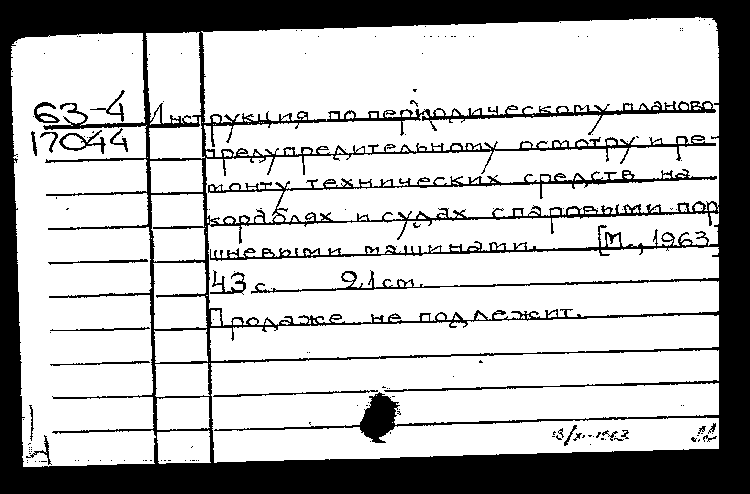 63-4 Инструкция по периодическому планово-
17044 предупредительному осмотру и ре-
монту технических средств на
кораблях и судах с паровыми пор
шневыми машинами. [М., 1963]
43 с. 21 см.
Продаже не подлежит.
18/XI-1963